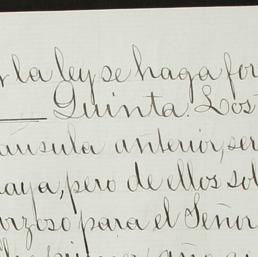 r la ley se haga for
Quinta. Los
áusula anterior, ser
aya, pero de ellos sol
rzoso para el Señor